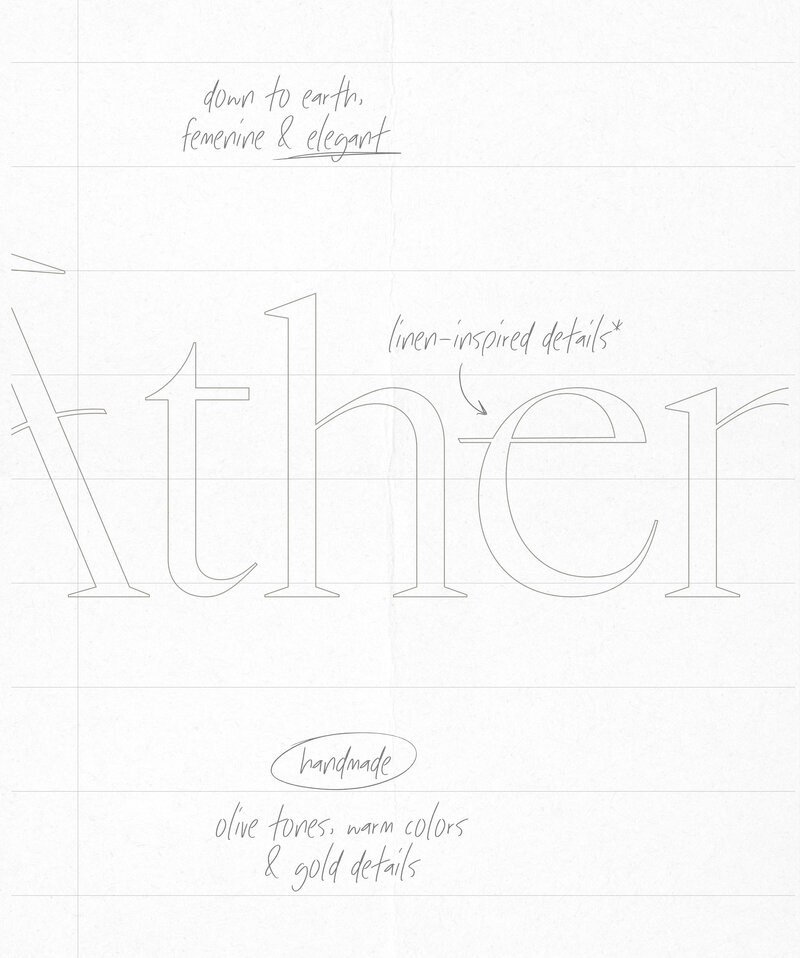 down to earth,
femenine & elegant
linen-inspired details*
Ather
handmade
olive tones, warm colors
& gold details